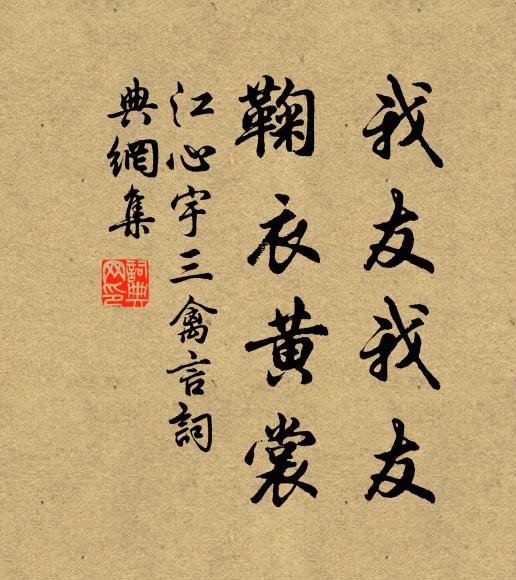 我友我友
鞠衣黄裳
江心宇三禽言詞
典網集
詞典
网印